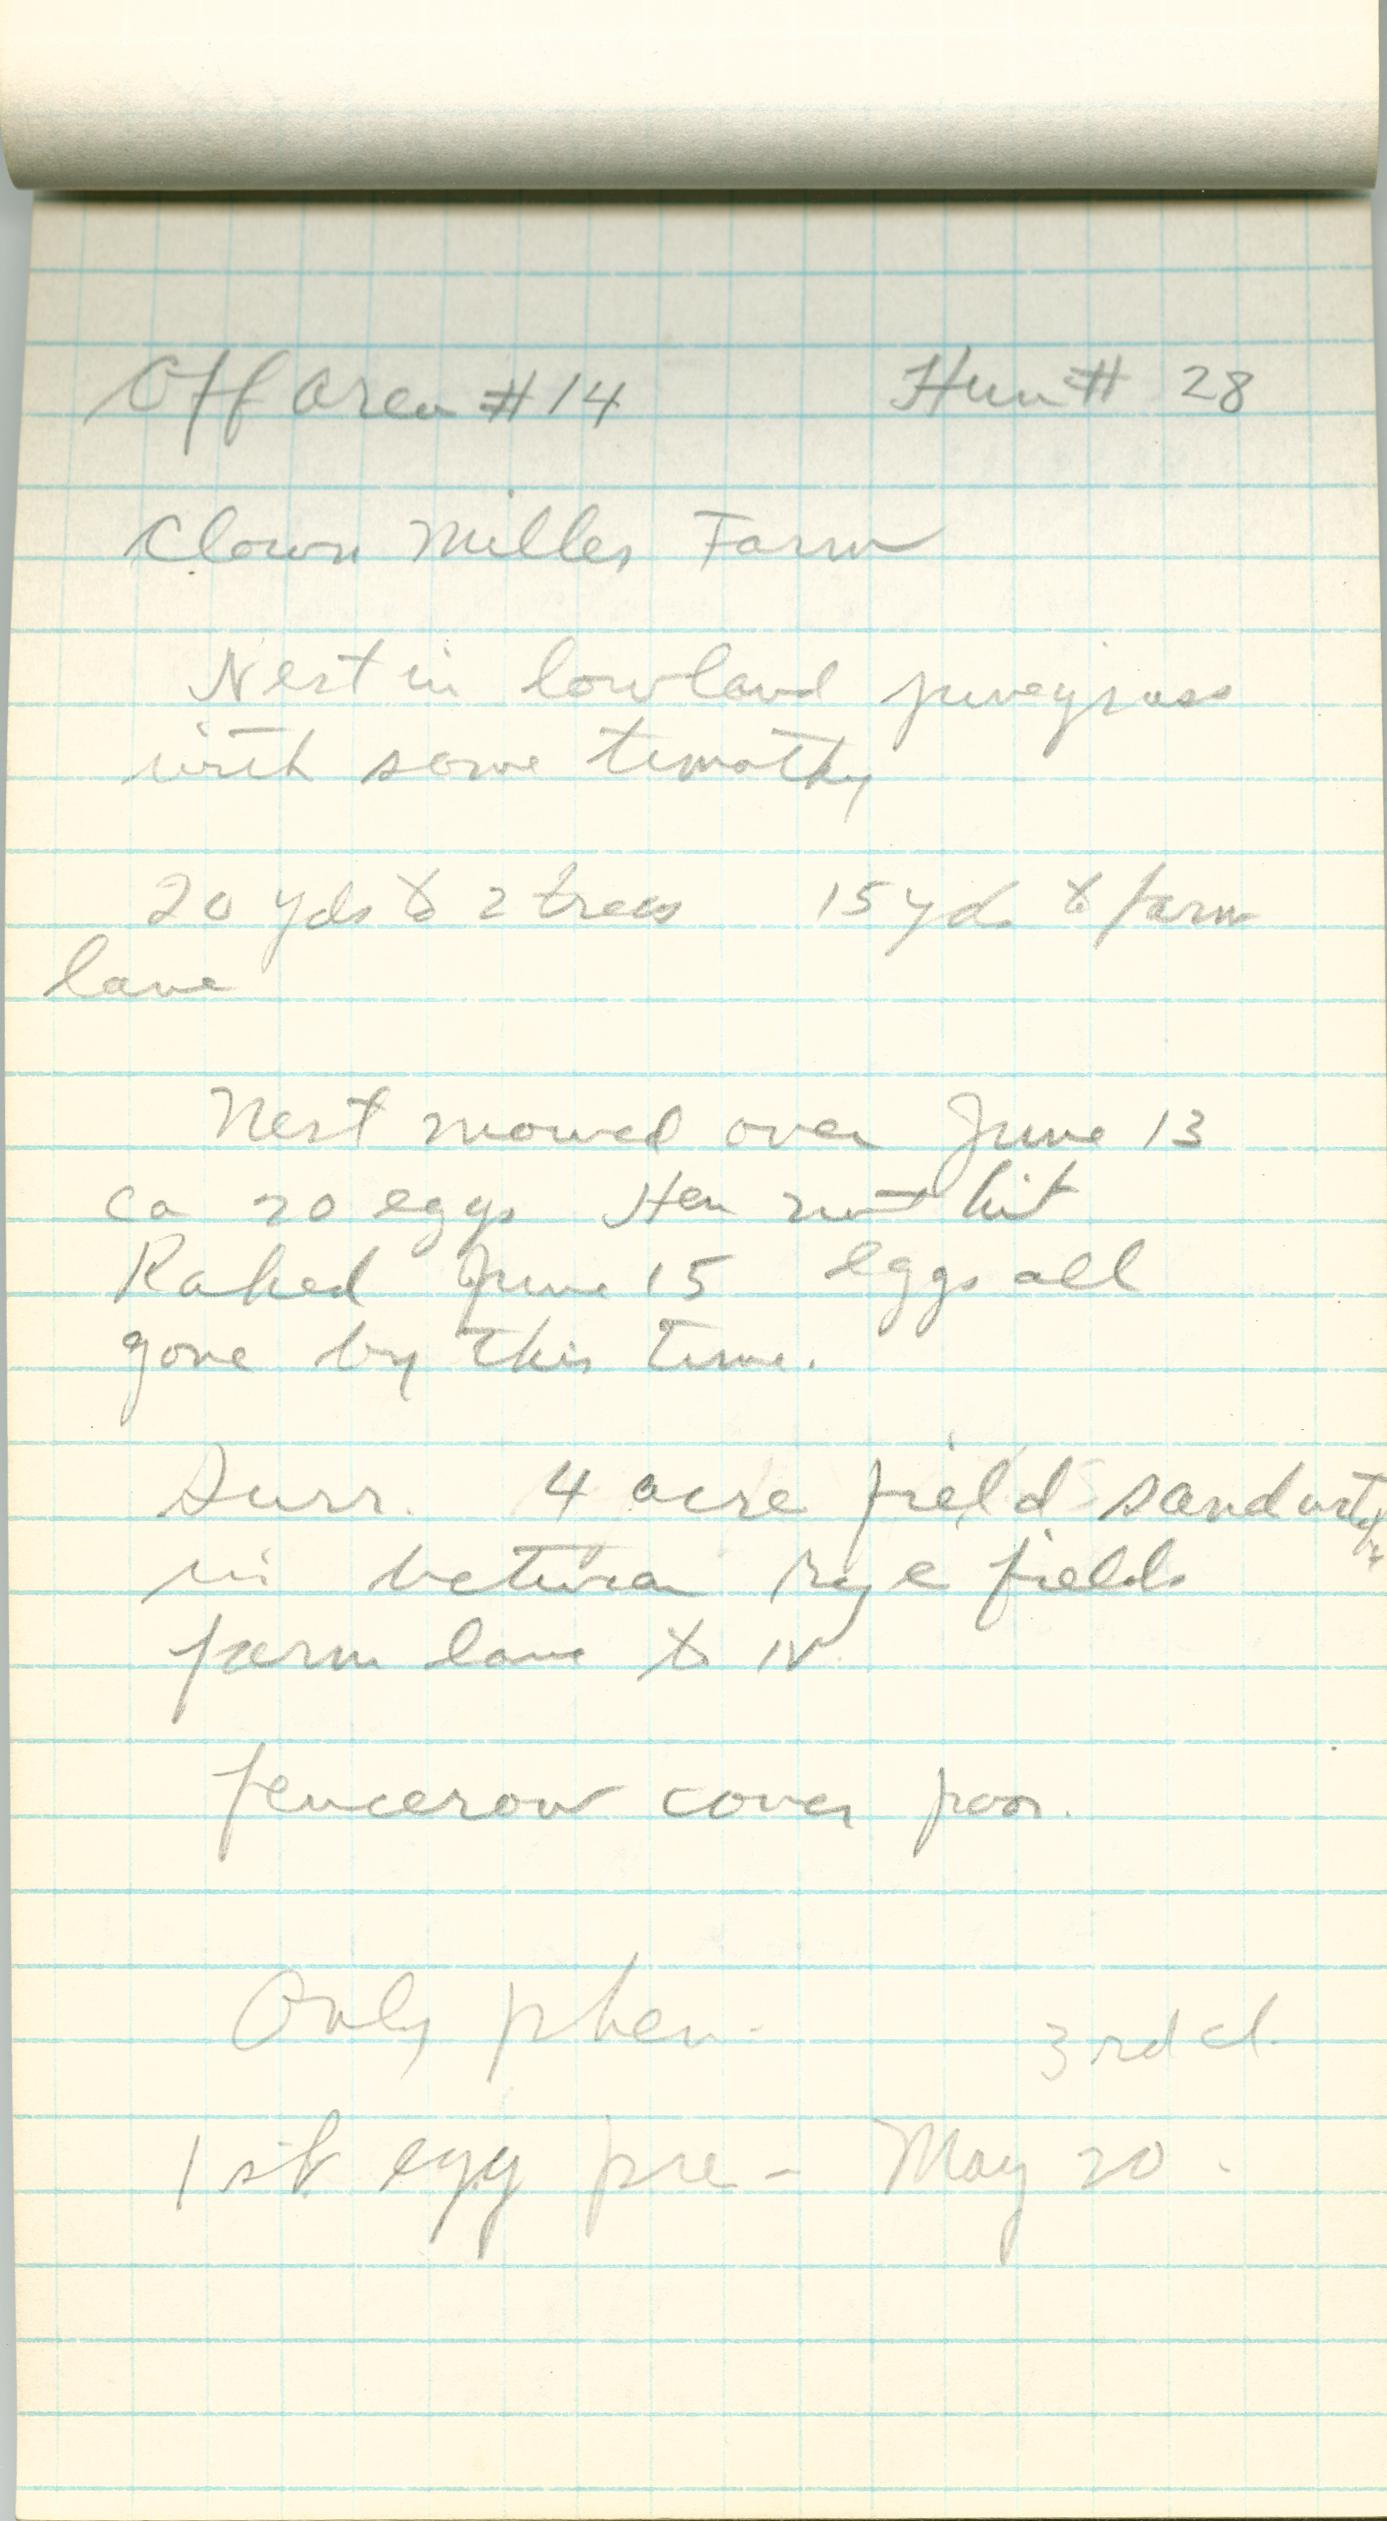 Off area #14 Hun # 28
Clown Miller Farm
Nest in lowland junegrass
with some timothy
20 yds to 2 trees 15 yds to farm
lane
Nest mowed over June 13
ca 20 eggs Hen not hit
Raked June 15 eggs all
gone by this time.
Surr. 4 acre field sandwiched
in between rye fields
farm lane to W.
fencerow cover poor.
Only phen. 3rd cl.
1st egg pre - May 20.